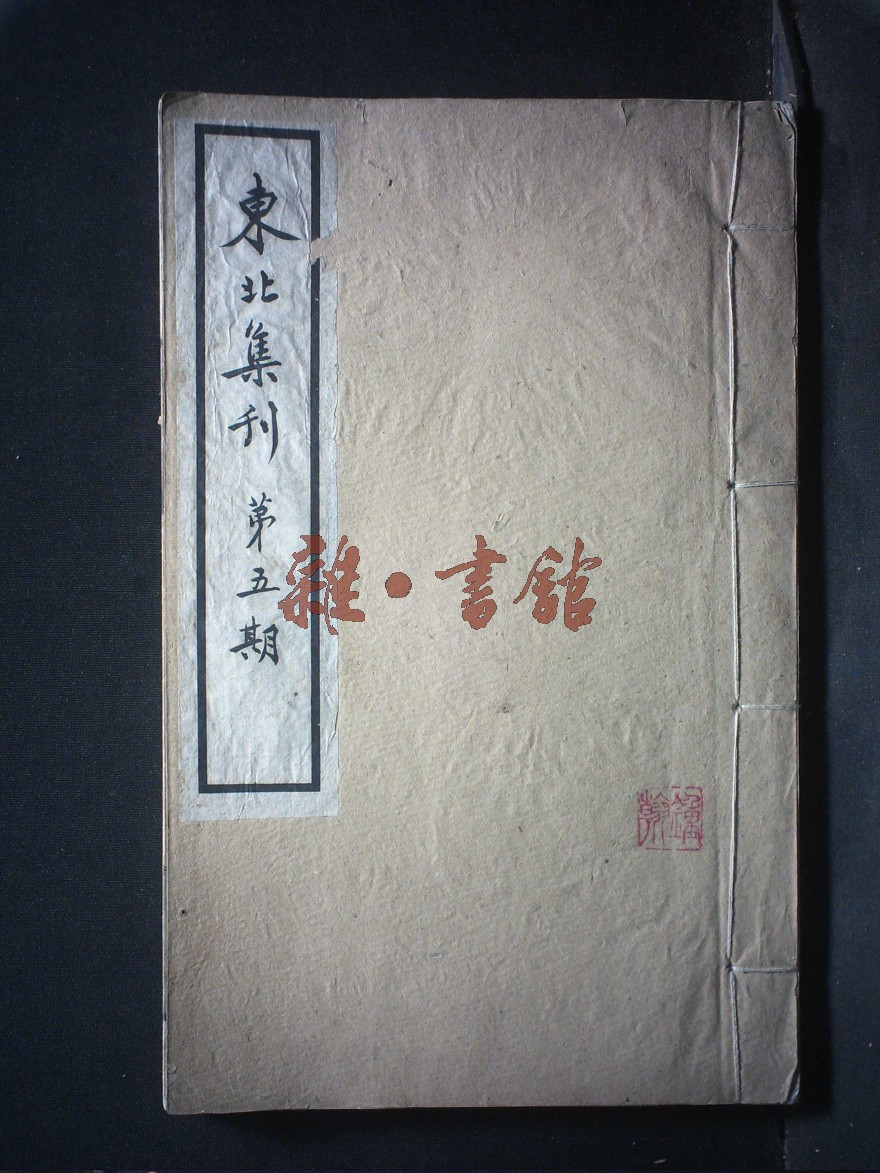 東北集刊 第五期
雜·書館